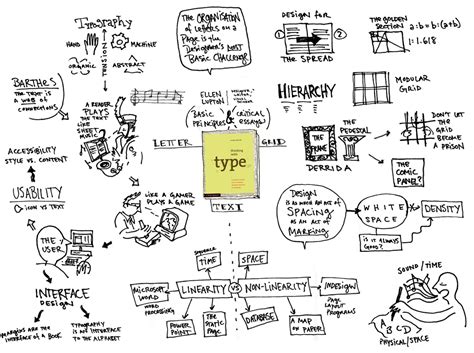 Typography
HAND
MACHINE
TENSION
ORGANIC
ABSTRACT
THE ORGANISATION
of LETTERS on A
PAGE is THE
DESIGNER'S MOST
BASIC CHALLENGE
DESIGN FOR
THE SPREAD
THE GOLDEN
SECTION
a:b=b:(a+b)
1:1.618
BARTHES
THE TEXT IS
A WEB OF
CONNECTIONS
A READER
PLAYS
THE TEXT
LIKE
SHEET
MUSIC
ELLEN
LUPTON
BASIC
PRINCIPLES
&
CRITICAL
ESSAYS
HIERARCHY
MODULAR
GRID
ACCESSIBILITY
STYLE vs. CONTENT
LETTER
GRID
thinking with
type
TEXT
THE FRAME
THE
PEDESTAL
DERRIDA
DON'T LET
THE GRID
BECOME
A PRISON
THE
COMIC
PANEL?
USABILITY
ICON VS TEXT
LIKE A GAMER
PLAYS A GAME
DESIGN
IS AS MUCH AN ACT OF
SPACING
AS AN ACT OF
MARKING
WHITE
SPACE
DENSITY
IS IT ALWAYS
GOOD?
THE
USER
INTERFACE
DESIGN
MARGINS ARE THE
INTERFACE OF A BOOK
TYPOGRAPHY
IS AN INTERFACE
TO THE ALPHABET
SEQUENCE
TIME
SPACE
LINEARITY
VS
NON-LINEARITY
MICROSOFT
WORD
WORD
PROCESSING
POWER
POINT
THE STATIC
PAGE
DATABASE
A MAP
ON PAPER
INDESIGN
PAGE
LAYOUT
PROGRAMS
SOUND/TIME
A B C D
PHYSICAL/SPACE